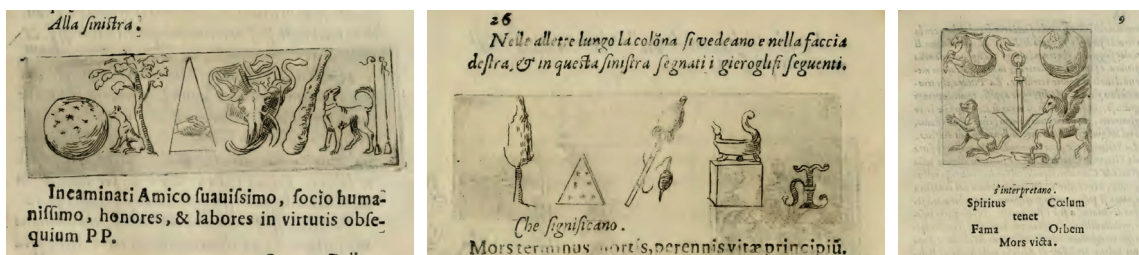 Alla sinistra.
Incaminati Amico suauissimo, socio huma-
nissimo, honores, & labores in virtutis obse-
quium PP.
26
Nelle allette lungo la colõna si vedeano e nella faccia
destra, & in questa sinistra segnati i gieroglifi seguenti.
Che significano.
Mors terminus mortis, perennis vitæ principiũ.
9
s'interpretano.
Spiritus Cœlum
tenet
Fama Orbem
Mors victa.